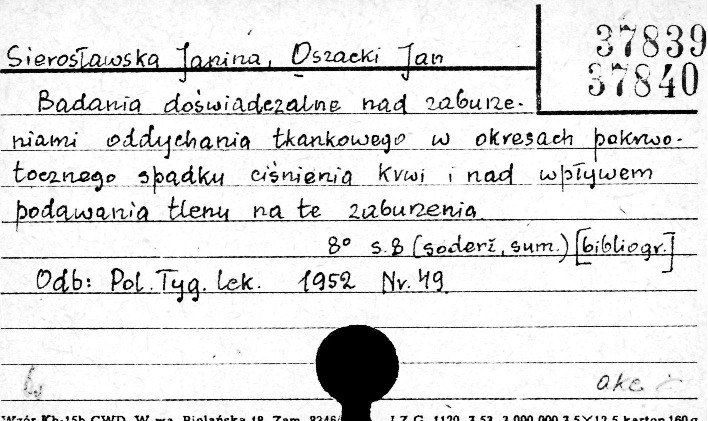 37839
37840
Sierosławska Janina, Oszacki Jan
Badania doświadczalne nad zaburze-
niami oddychania tkankowego w okresach pokrwo-
tocznego spadku ciśnienia krwi i nad wpływem
podawania tlenu na te zaburzenia
8° s.8 (soderż, sum.) [bibliogr.]
Odb: Pol. Tyg. lek. 1952 Nr. 49
akc
Wzór Kh-15b CWD, W-wa, Bielańska 18. Zam. 8346/ L.Z.G. 1120. 3.53. 3.000.000 7,5×12,5 karton 160 g